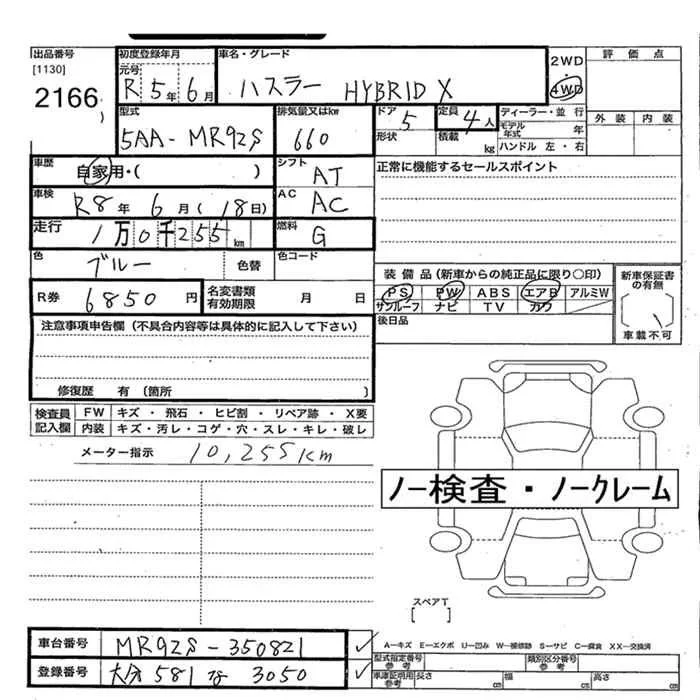 出品番号
[1130]
2166
初度登録年月
元号
R 5年 6月
車名・グレード
ハスラー HYBRID X
2WD
・
4WD
評価点
外装 内装
型式
5AA-MR92S
排気量又はkw
660
ドア
5
形状
定員
4人
積載 kg
ディーラー・並行
モデル年式 年
ハンドル 左・右
車歴
自家用・( )
シフト
AT
正常に機能するセールスポイント
車検
R8年 6月(18日)
AC
AC
走行
1万0千255km
燃料
G
色
ブルー
色替
色コード
装備品(新車からの純正品に限り○印)
PS PW ABS エアB アルミW
サンルーフ ナビ TV カワ
新車保証書の有無
[ ]
車載不可
R券 6850円
名変書類有効期限 月 日
後日品
注意事項申告欄(不具合内容等は具体的に記入して下さい)
修復歴 有(箇所 )
検査員記入欄
FW キズ・飛石・ヒビ割・リペア跡・X要
内装 キズ・汚レ・コゲ・穴・スレ・キレ・破レ
メーター指示 10,255km
ノー検査・ノークレーム
スペアT
[ ]
車台番号 MR92S-350821
登録番号 大分 581 な 3050
A-キズ E-エクボ U-凹み W-補修跡 S-サビ C-腐食 XX-交換済
型式指定番号参考
類別区分番号参考
車庫証明用参考 長さ cm 幅 cm 高さ cm